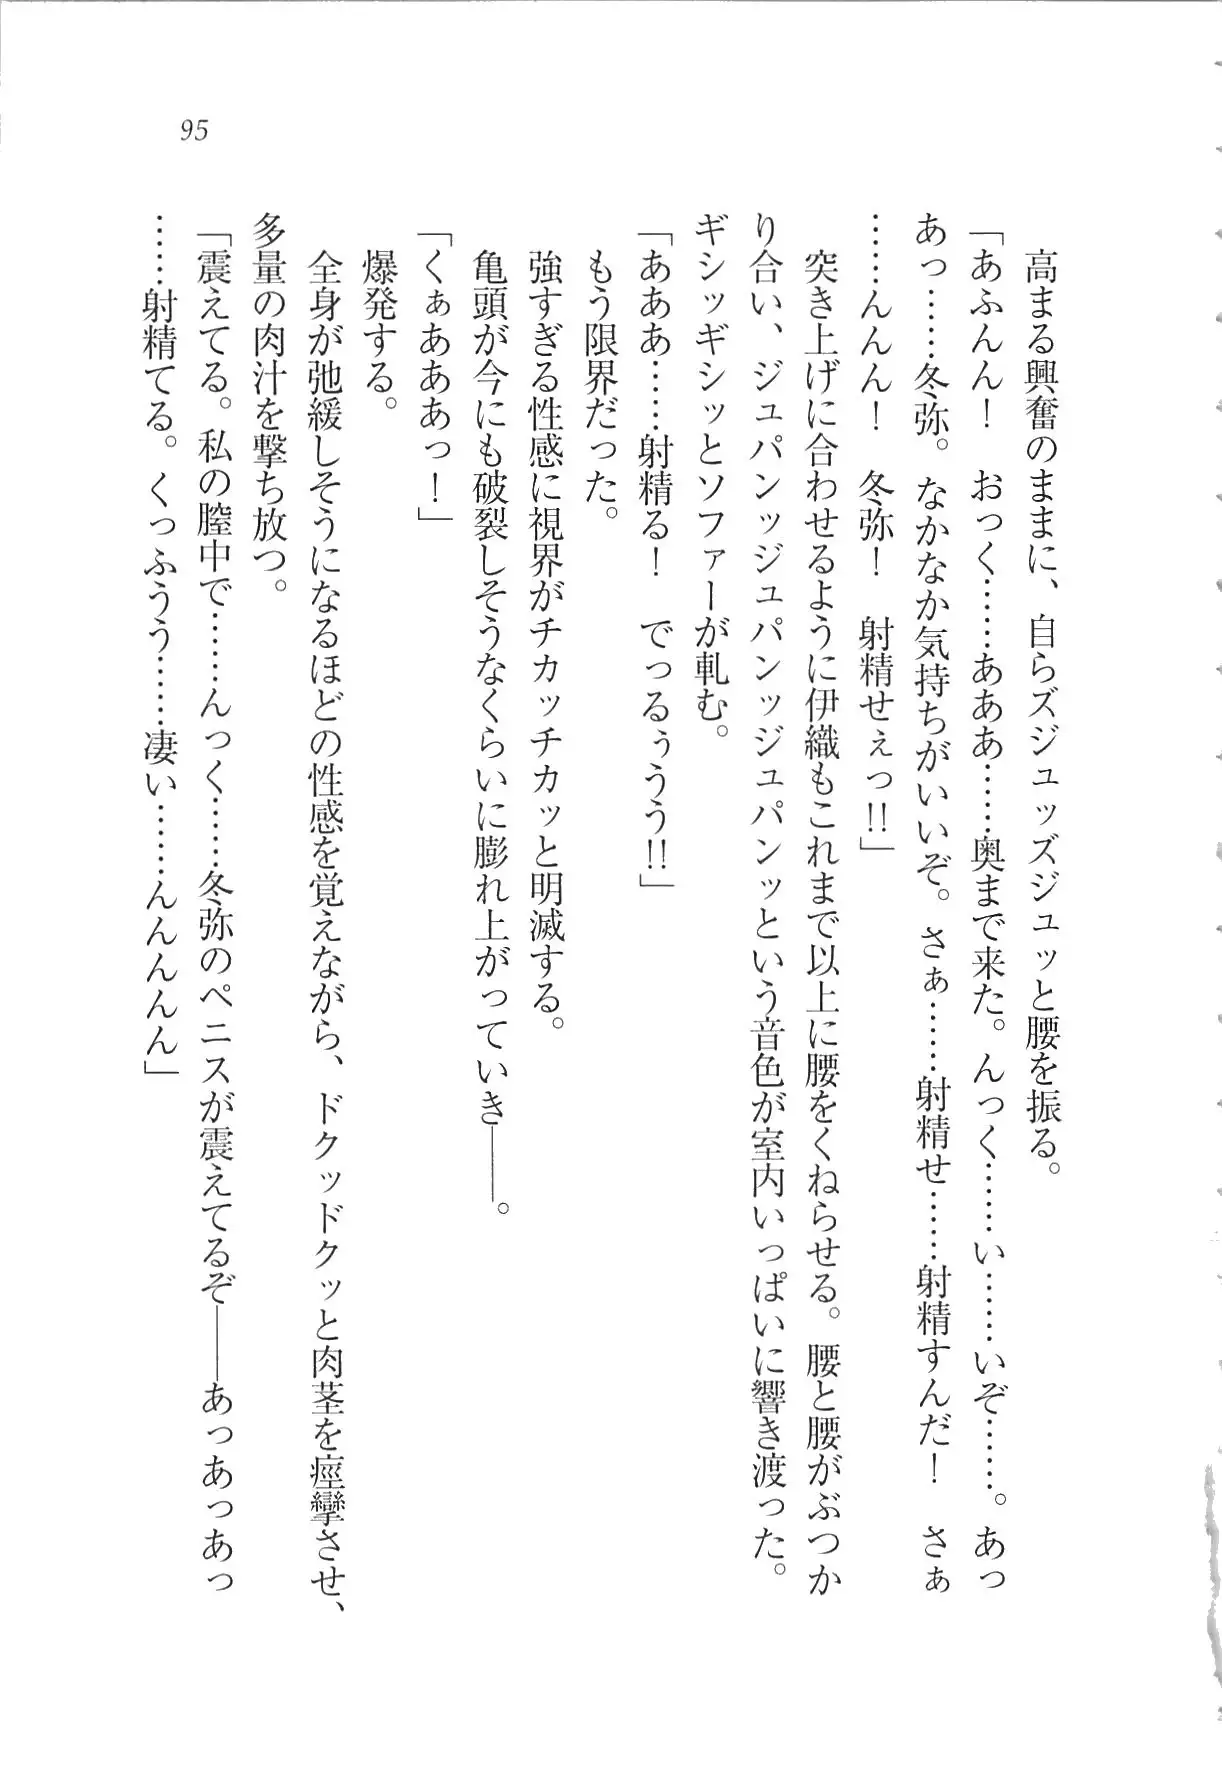 95
高まる興奮のままに、自らズジュッズジュッと腰を振る。
「あふんん！　おっく……あああ……奥まで来た。んっく……い……いぞ……。あっ
あっ……冬弥。なかなか気持ちがいいぞ。さぁ……射精せ……射精すんだ！　さぁ
……んんん！　冬弥！　射精せぇっ!!」
突き上げに合わせるように伊織もこれまで以上に腰をくねらせる。腰と腰がぶつか
り合い、ジュパンッジュパンッジュパンッという音色が室内いっぱいに響き渡った。
ギシッギシッとソファーが軋む。
「あああ……射精る！　でっるぅうう!!」
もう限界だった。
強すぎる性感に視界がチカッチカッと明滅する。
亀頭が今にも破裂しそうなくらいに膨れ上がっていき――。
「くぁあああっ！」
爆発する。
全身が弛緩しそうになるほどの性感を覚えながら、ドクッドクッと肉茎を痙攣させ、
多量の肉汁を撃ち放つ。
「震えてる。私の膣中で……んっく……冬弥のペニスが震えてるぞ――あっあっあっ
……射精てる。くっふうう……凄い……んんんん」